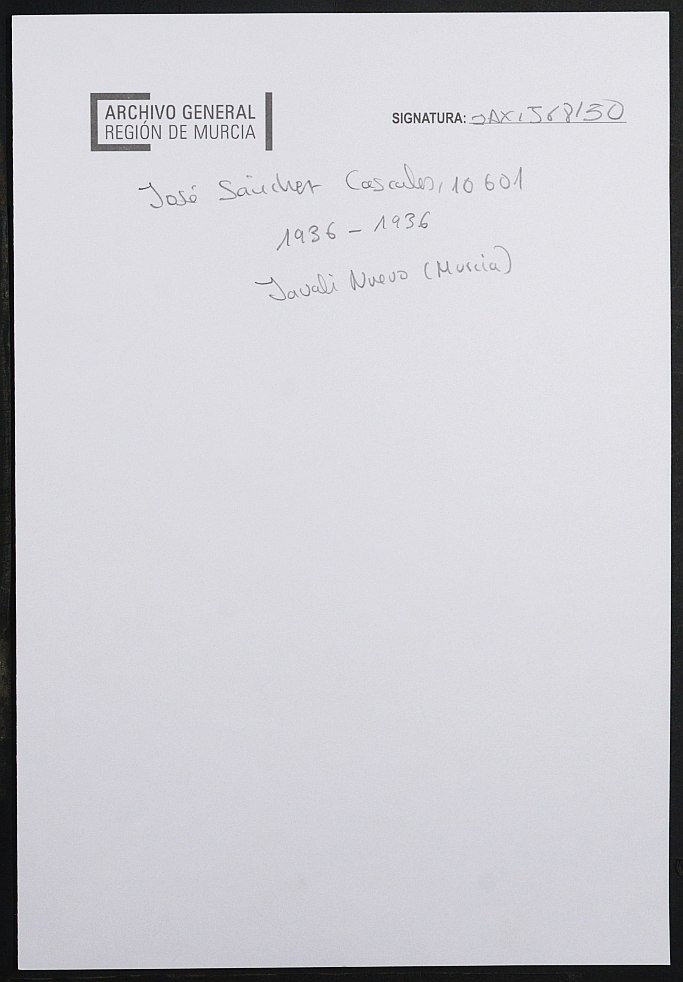 ARCHIVO GENERAL
REGIÓN DE MURCIA
SIGNATURA: JAX,568/50
José Sánchez Cascales, 10601
1936 - 1936
Javali Nuevo (Murcia)